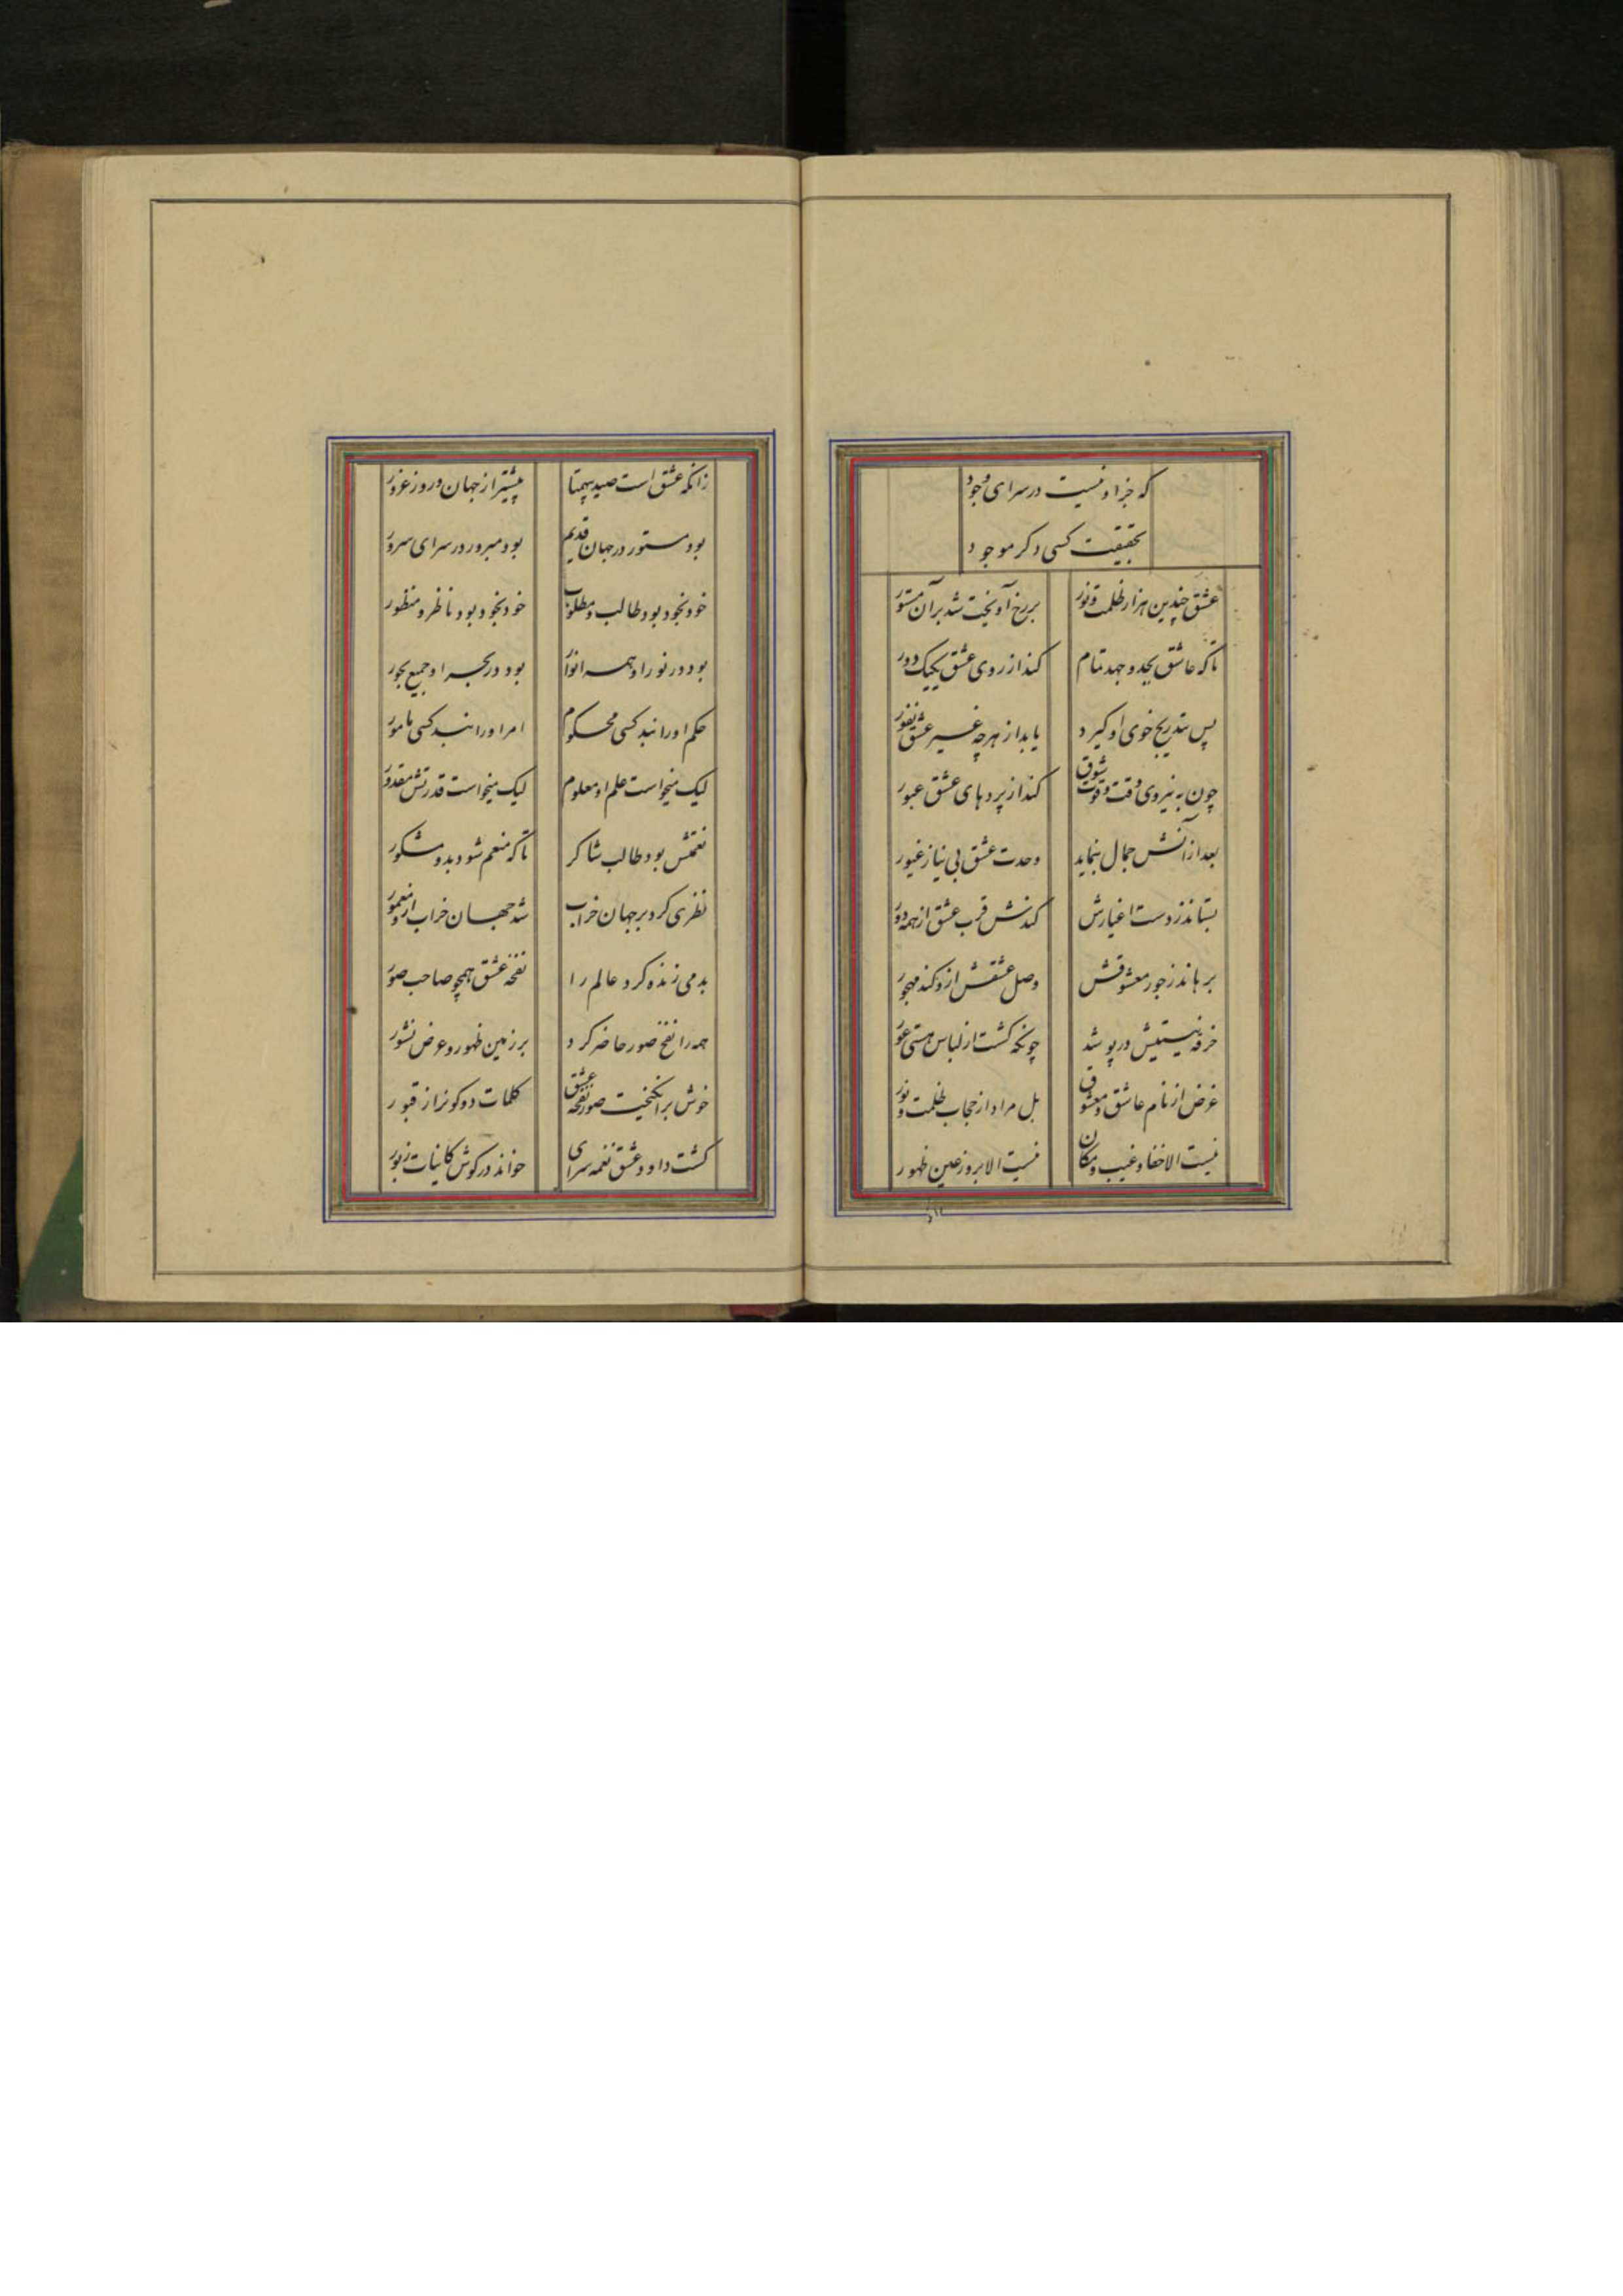 که جز او نیست در سرای وجود
بحقیقت کسی دکر موجود
عشق چندین هزار ظلمت و نور
بر رخ آویخت شد بر آن مستور
تا که عاشق بجد و جهد تمام
کند از روی عشق یکیک دور
پس بتدریج خوی او کیرد
یابد از هرچه غیر عشق نفور
چون به نیروی وقت و قوت شوق
کند از پردهای عشق عبور
بعد از آنش جمال بنماید
وحدت عشق بی نیاز غیور
بستاند ز دست اغیارش
کندش قرب عشق از همه دور
برهاند ز جور معشوقش
وصل عشقش ازو کند مهجور
خرقه نیستیش در پوشد
چونکه کشت از لباس هستی عور
غرض از نام عاشق و معشوق
بل مراد از حجاب ظلمت و نور
نیست الا خفا و غیب و مکان
نیست الا بروز عین ظهور
زانکه عشق است صید بیهمتا
پیشتر از جهان و روز غرور
بود مستور در جهان قدیم
بود مبرور در سرای سرور
خود بخود بود طالب و مطلوب
خود بخود بود ناظر و منظور
بود در نور او همه انوار
بود در بحر او جمیع بحور
حکم او را نبد کسی محکوم
امر او را نبد کسی مامور
لیک میخواست علم او معلوم
لیک میخواست قدرتش مقدور
نعمتش بود طالب شاکر
تا که منعم شود بدو مشکور
نظری کرد بر جهان خراب
شد جهان خراب ازو معمور
بدمی زنده کرد عالم را
نفخه عشق همچو صاحب صور
همه را نفخ صور حاضر کرد
بر زمین ظهور و عرض نشور
خوش برانکیخت صور نفخه عشق
کلمات دو کونرا از قبور
کشت داود عشق نغمه سرای
خواند در کوش کاینات زبور